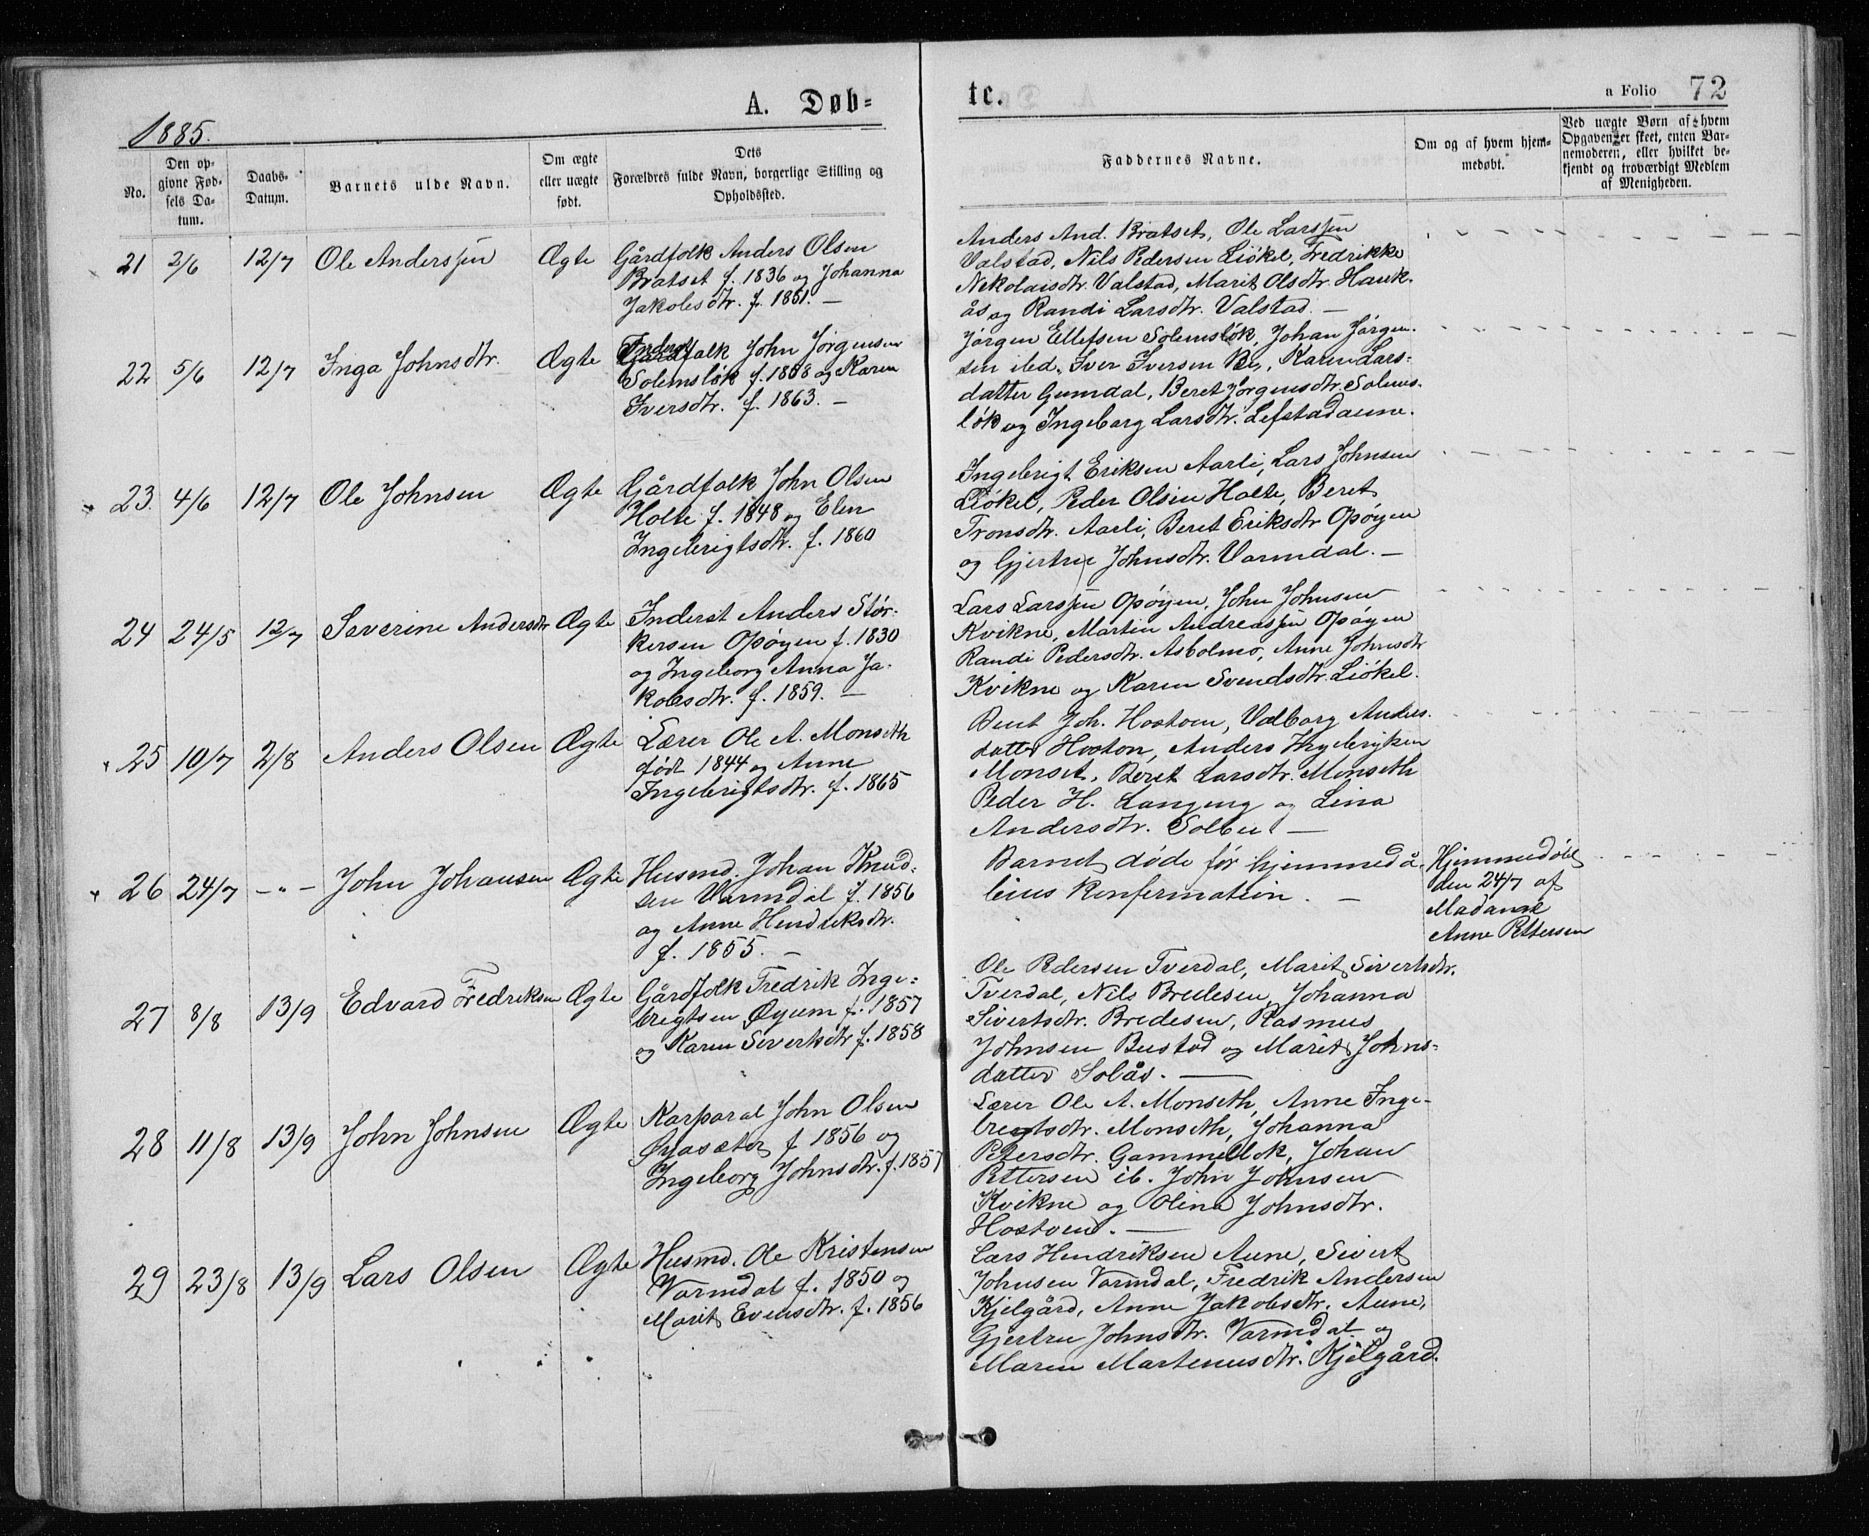 A. Døb=
te.
a Folio 72
1885.
No.
Den op-
givne Fød-
sels Da-
tum.
Daabs-
Datum.
Barnets ulde Navn.
Om ægte
eller uægte
født.
Dets
Forældres fulde Navn, borgerlige Stilling og
Opholdssted.
Faddernes Navne.
Om og af hvem hjem-
medøbt.
Ved uægte Børn af hvem
Opgaven er skeet, enten Bar-
nemoderen, eller hvilket be-
kjendt og troværdigt Medlem
af Menigheden.
21 2/6 12/7 Ole Anderssen Ægte
Gårdfolk Anders Olsen
Bratset f. 1836 og Johanna
Jakobsdtr. f. 1851. —
Anders And. Bratset, Ole Larssen
Valstad, Nils Pedersen Liøkel, Fredrikke
Nekolaisdtr. Valstad, Marit Olsdtr. Hauk-
ås og Randi Larsdtr. Valstad. —
22 5/6 12/7 Inga Johnsdtr. Ægte
John Jørgensen
Solemsløk f. 1858 og Karen
Iversdtr. f. 1863. —
Jørgen Ellefsen Solemsløk, Johan Jørgen-
sen ibd., Iver Iversen Bø, Karen Lars-
datter Gumdal, Beret Jørgensdtr. Solems-
løk og Ingeborg Larsdtr. Lefstadaune.
23. 4/6 12/7 Ole Johnsen Ægte
Gårdfolk John Olsen
Holte f. 1848 og Elen
Ingebrigtsdtr. f. 1860
Ingebrigt Eriksen Aarli, Lars Johnsen
Liøkel, Peder Olsen Holte, Beret
Tronsdtr. Aarli, Beret Eriksdtr Opøyen
og Gjertru Johnsdtr. Varmdal. —
24 24/5 12/7 Severine Andersdtr Ægte
Inderst Anders Stør-
kersen Opøyen f. 1830
og Ingeborg Anna Ja-
kobsdtr. f. 1859. —
Lars Larssen Opøyen, John Johnsen
Kvikne, Martin Andreassen Opøyen
Randi Pedersdtr. Asbolmo, Anne Johnsdtr
Kvikne og Karen Svendsdtr. Liøkel.
25 10/7 2/8 Anders Olsen Ægte
Lærer Ole A. Monseth
født 1844 og Anne
Ingebrigtsdtr. f. 1865
Bent Joh. Hostoen, Valborg Anders-
datter Hoston, Anders Ingebrigtsen
Monset, Beret Larsdtr. Monseth
Peder H. Langeng og Lina
Andersdtr. Solbu —
26 24/7 —"— John Johansen Ægte
Husmd. Johan Knud-
sen Varmdal f. 1856
og Anne Hendriksdtr.
f. 1855. —
Barnet døde før hjemmedå-
bens Konfirmation. —
Hjemmedøbt
den 24/7 af
Madame
Anne Pettersen
27 8/8 13/9 Edvard Fredriksen Ægte
Gårdfolk Fredrik Inge-
brigtsen Øyum f. 1857
og Karen Sivertsdtr f. 1858
Ole Pedersen Tverdal, Marit Sivertsdtr.
Tverdal, Nils Bredesen, Johanna
Sivertsdtr. Bredesen, Rasmus
Johnsen Bustad og Marit Johns-
datter Solås. —
28 11/8 13/9 John Johnsen Ægte
Korporal John Olsen
Øyasæter f 1856 og
Ingeborg Johnsdtr. f. 1857
Lærer Ole A. Monseth, Anne Inge-
brigtsdtr. Monseth, Johanna
Petersdtr. Gammelløk, Johan
Pettersen ib. John Johnsen
Kvikne og Olina Johnsdtr.
Hostoen. —
29 23/8 13/9 Lars Olsen Ægte
Husmd. Ole Kristensen
Varmdal f. 1850 og
Marit Evensdtr. f. 1856
Lars Hendriksen Aune, Sivert
Johnsen Varmdal, Fredrik Andersen
Kjelgård, Anne Jakobsdtr. Aune,
Gjertru Johnsdtr. Varmdal og
Maren Martenusdtr. Kjelgård.